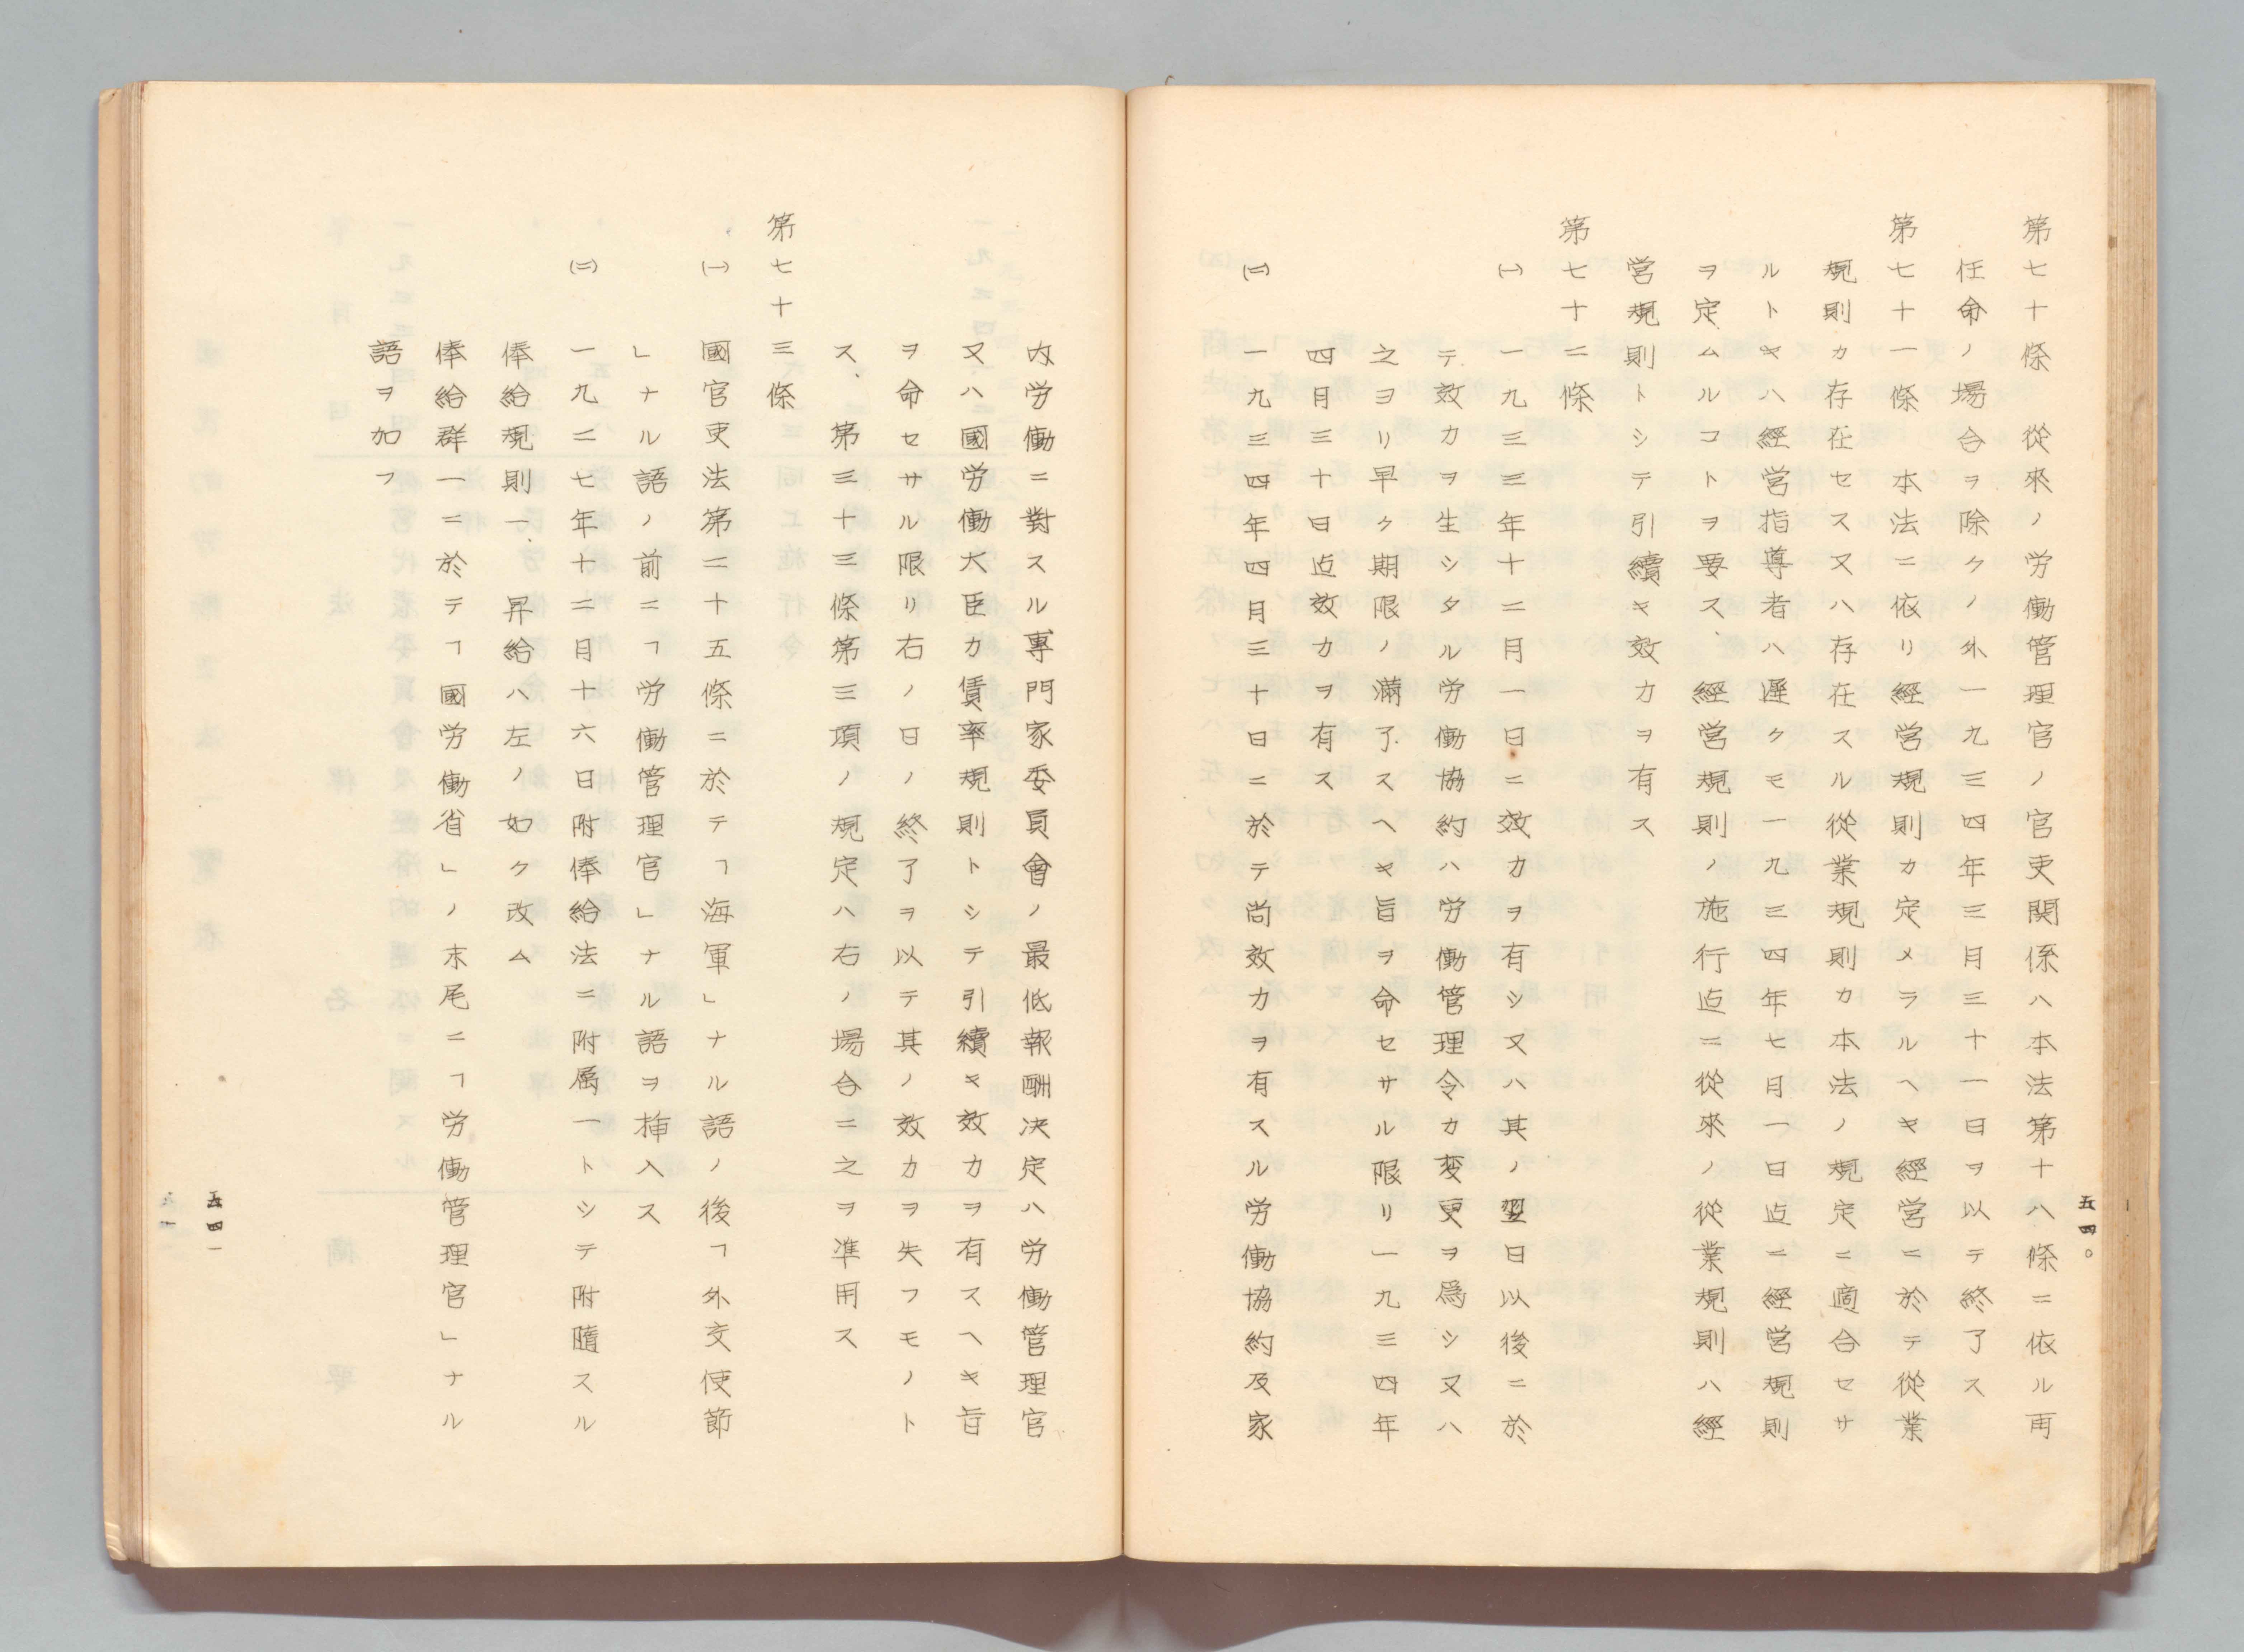 五四〇
第七十條　從來ノ労働管理官ノ官吏関係ハ本法第十八條ニ依ル再
任命ノ場合ヲ除クノ外一九三四年三月三十一日ヲ以テ終了ス
第七十一條　本法ニ依リ經営規則カ定メラルヘキ經営ニ於テ從業
規則カ存在セス又ハ存在スル從業規則カ本法ノ規定ニ適合セサ
ルトキハ經営指導者ハ遅クモ一九三四年七月一日迄ニ經営規則
ヲ定ムルコトヲ要ス、經営規則ノ施行迄ニ從來ノ從業規則ハ經
営規則トシテ引續キ效力ヲ有ス
第七十二條
㈠　一九三三年十二月一日ニ效力ヲ有シ又ハ其ノ翌日以後ニ於
テ效力ヲ生シタル労働協約ハ労働管理令カ変更ヲ爲シ又ハ
之ヨリ早ク期限ノ滿了スヘキ旨ヲ命セサル限リ一九三四年
四月三十日迄效力ヲ有ス
㈡　一九三四年四月三十日ニ於テ尚效力ヲ有スル労働協約及家
内労働ニ對スル專門家委員會ノ最低報酬決定ハ労働管理官
又ハ國労働大臣カ賃率規則トシテ引續キ效力ヲ有スヘキ旨
ヲ命セサル限リ右ノ日ノ終了ヲ以テ其ノ效力ヲ失フモノト
ス、第三十三條第三項ノ規定ハ右ノ場合ニ之ヲ準用ス
第七十三條
㈠　國官吏法第二十五條ニ於テ「海軍」ナル語ノ後「外交使節
」ナル語ノ前ニ「労働管理官」ナル語ヲ挿入ス
㈡　一九二七年十二月十六日附俸給法ニ附属一トシテ附隨スル
俸給規則一、昇給ハ左ノ如ク改ム
俸給群一ニ於テ「國労働省」ノ末尾ニ「労働管理官」ナル
語ヲ加フ
五四一